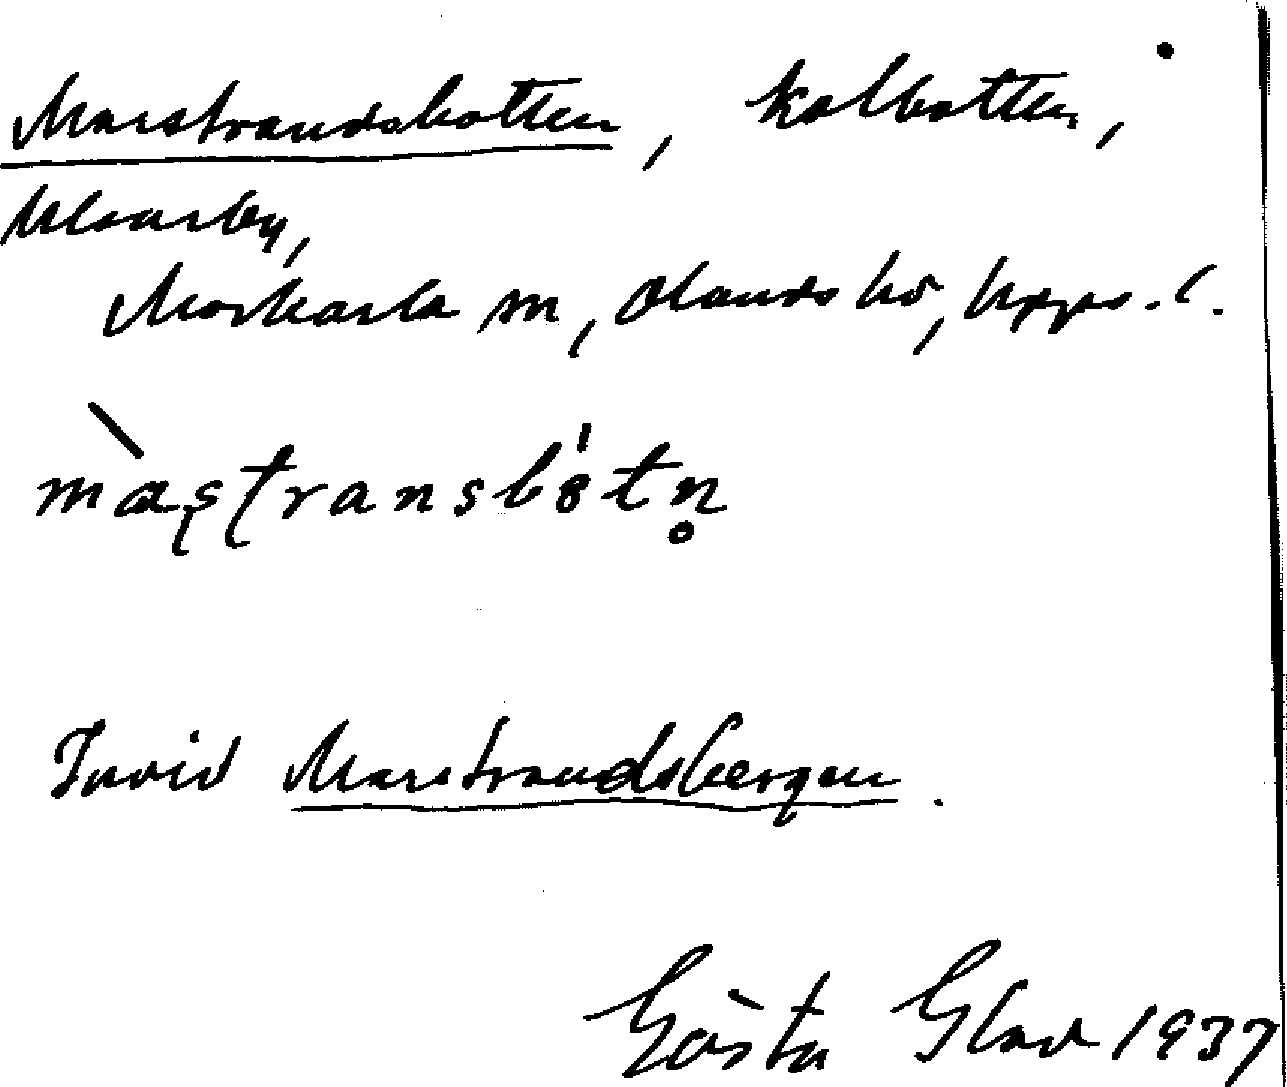 Marstrandsbotten, kolbotten,
Ulvarby,
Morkarla sn, Olands hd, Upps. l.
màs̩transbòtn̥
Invid Marstrandsbergen.
Gösta Glad 1937